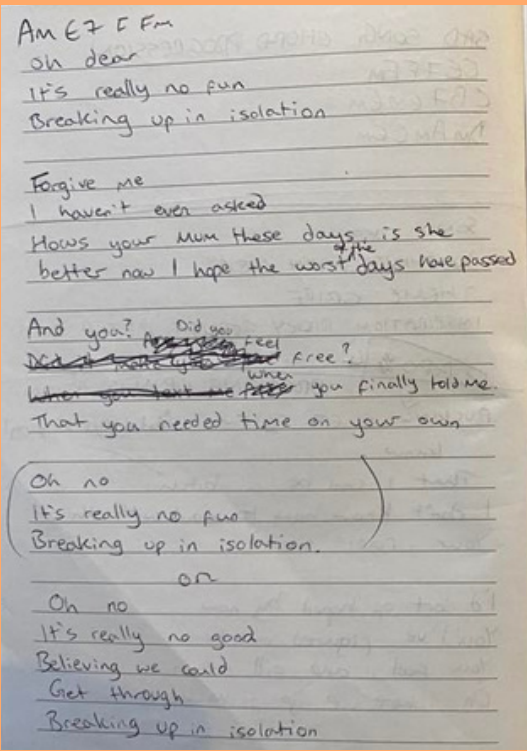 Am E7 F Fm
Oh dear
It's really no fun
Breaking up in isolation
Forgive me
I haven't even asked
Hows your mum these days, is she
better now I hope the worst of the days have passed
And you? Did you feel
free?
when you finally told me.
That you needed time on your own
Oh no
It's really no fun
Breaking up in isolation.
or
Oh no
It's really no good
Believing we could
Get through
Breaking up in isolation